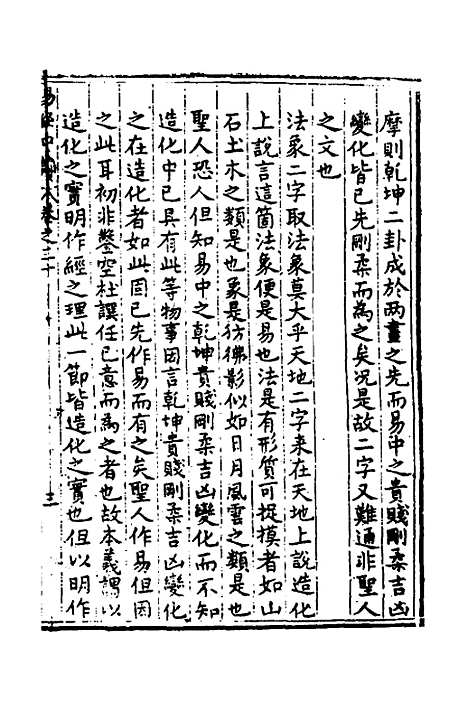 摩則乾坤二卦成於两畫之先而易中之貴賤剛柔吉凶
變化皆已先剛柔而為之矣况是故二字又難通非聖人
之文也
法象二字取法象莫大乎天地二字来在天地上說造化
上說言這箇法象便是易也法是有形質可捉摸者如山
石土木之類是也象是彷彿影似如日月風雲之類是也
聖人恐人但知易中之乾坤貴賤剛柔吉凶變化而不知
造化中已具有此等物事因言乾坤貴賤剛柔吉凶變化
之在造化者如此固已先作易而有之矣聖人作易但因
之此耳初非鑿空杜譔任已意而為之者也故本義謂以
造化之實明作經之理此一節皆造化之實也但以明作
易經中 卷之二十
三